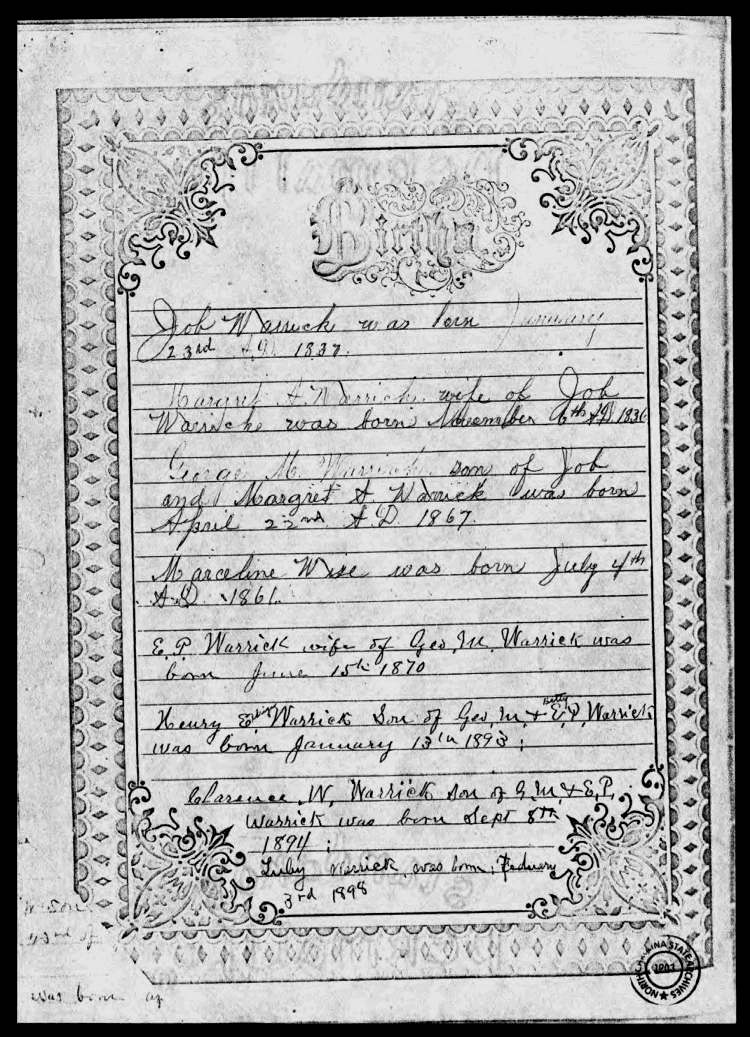 Births
Job Warrick was born January
23rd A.D. 1837.
Margret A Warrick wife of Job
Warrick was born November 6th AD 1836
George M. Warrick son of Job
and Margret A Warrick was born
April 22nd A.D. 1867.
Marceline Wise was born July 4th
A.D. 1861.
E. P. Warrick wife of Geo. M. Warrick was
born June 15th 1870
Betty
Henry E. Warrick Son of Geo. M. & E. P. Warrick
was born January 13th 1893;
Clarence W. Warrick son of G. M. & E. P.
Warrick was born Sept 8th
1894;
Luby Warrick was born; Feduary
3rd 1898
was born
NORTH CAROLINA STATE ARCHIVES